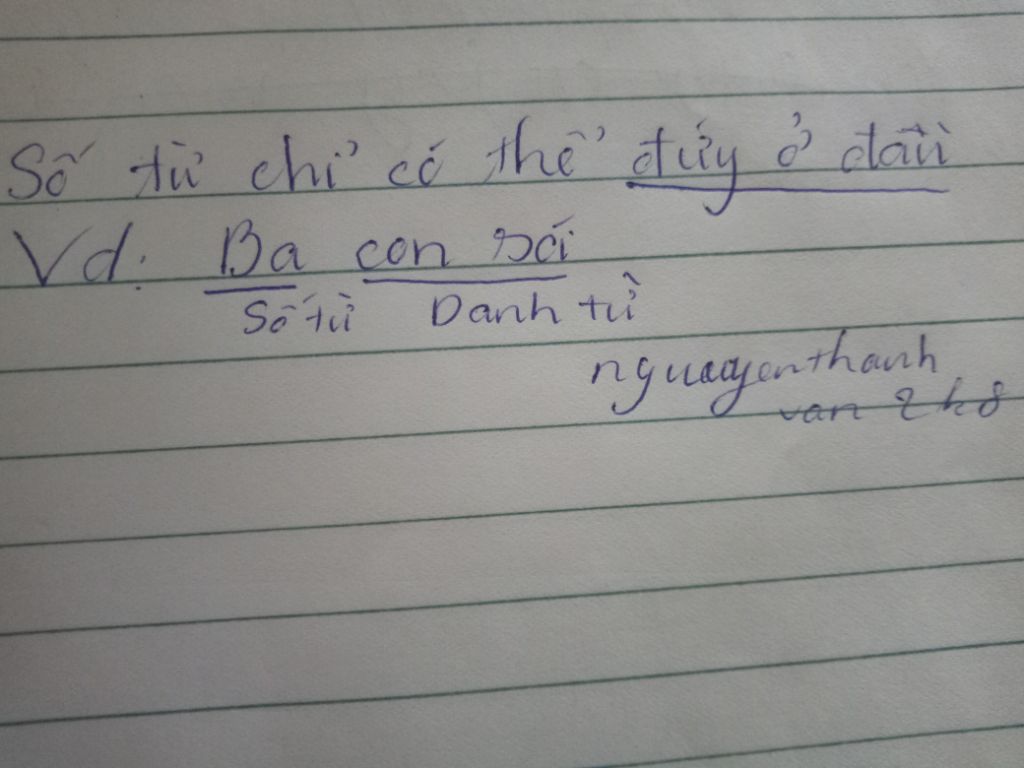 Số từ chỉ có thể đứy ở đầu
Vd: Ba con sói
Số từ Danh từ
nguuyenthanh
van 2k8